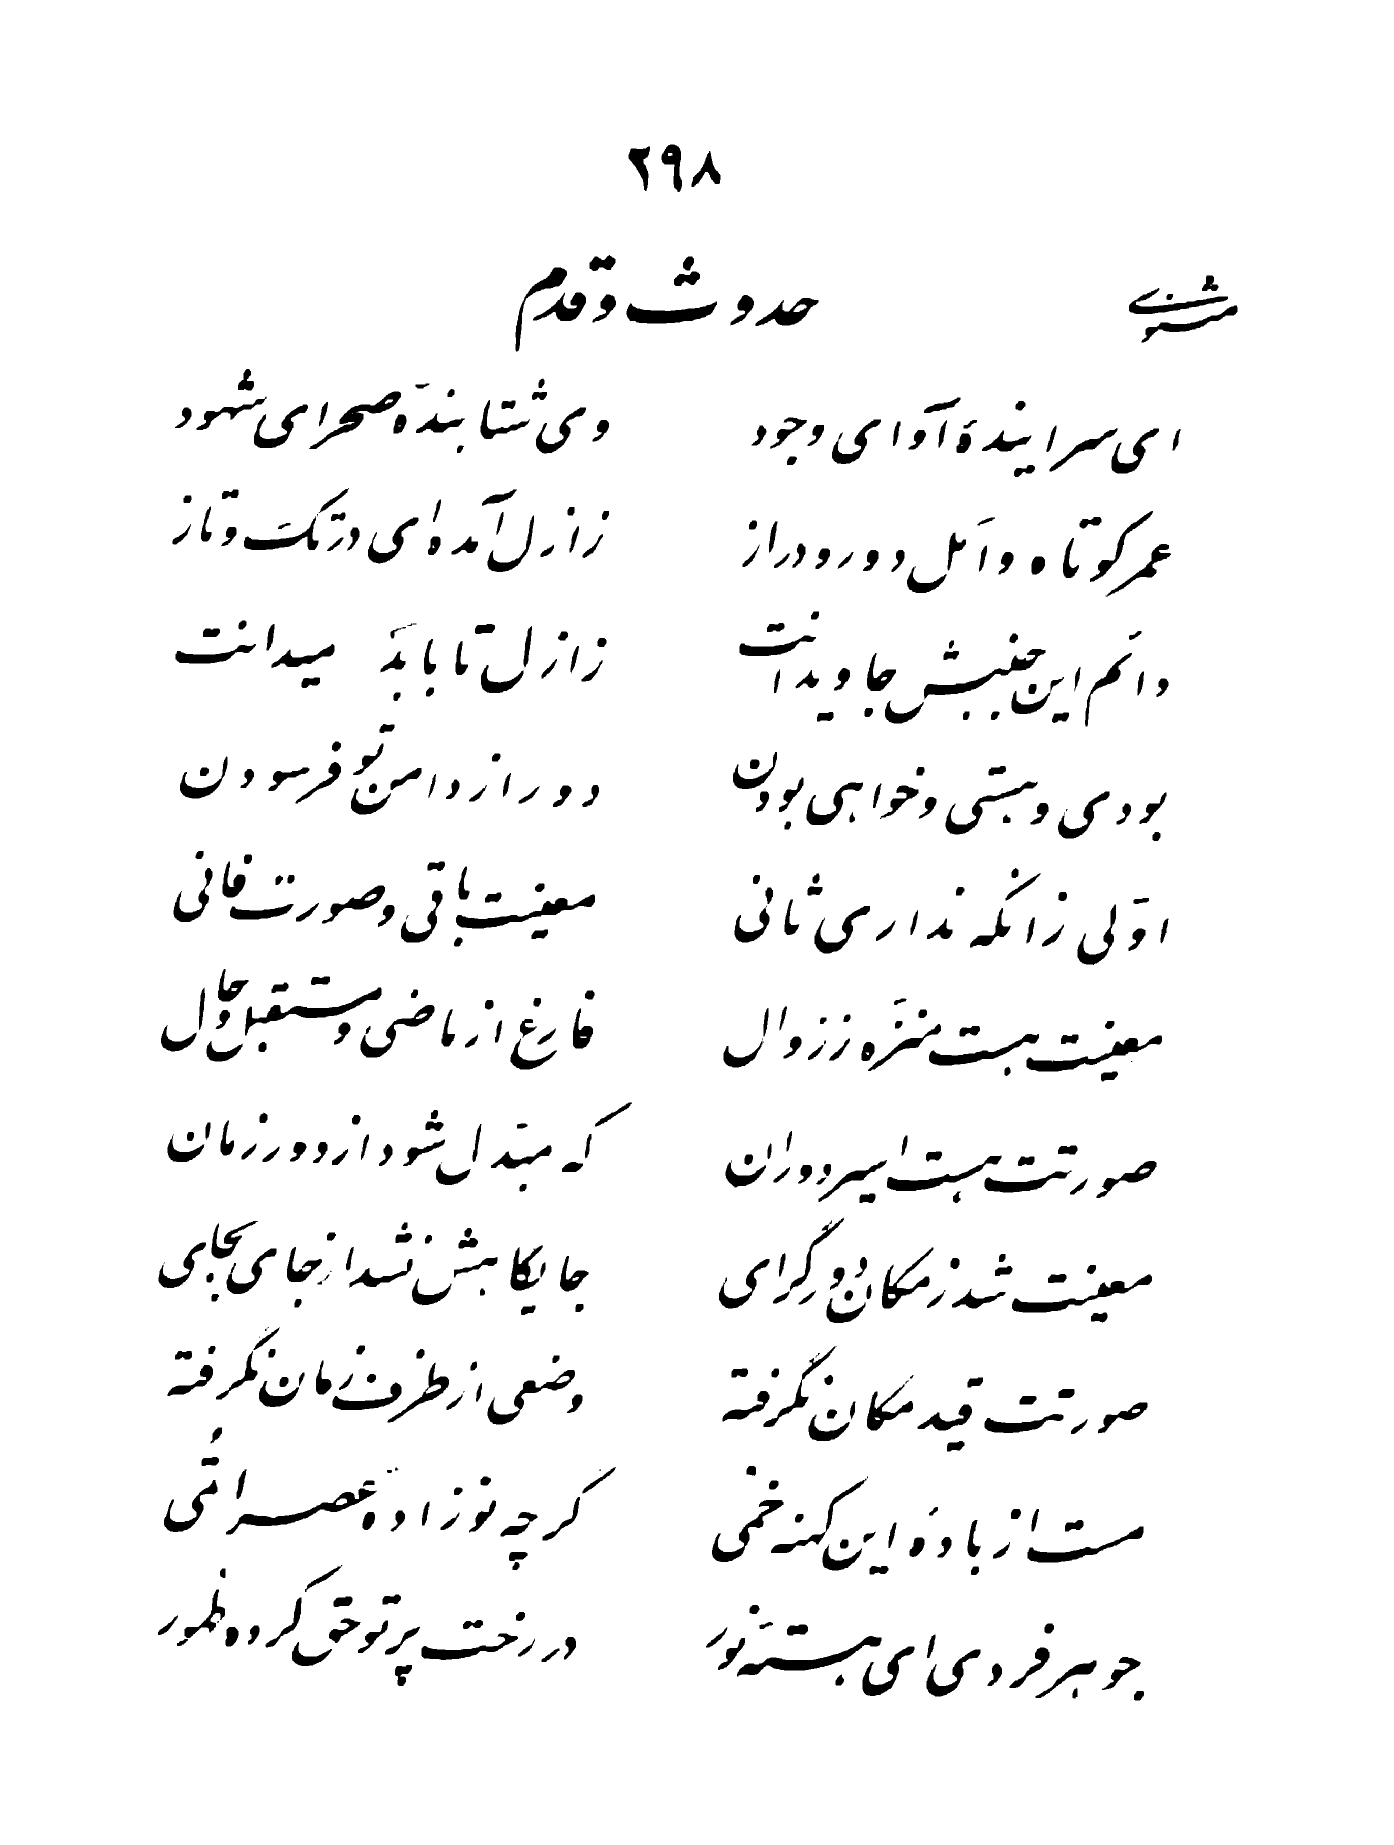 ۲۹۸
مثنوی
حدوث و قدم
ای سرایندهٔ آوای وجود
وی شتابندهٔ صحرای شهود
عمر کوتاه و اَمَل دور و دراز
ز ازل آمده‌ای در تک و تاز
دانم این جنبش جاویدانت
ز ازل تا باَبَد میدانت
بودی و هستی و خواهی بودن
دور از دامن تو فرسودن
اوّلی زانکه نداری ثانی
معنیت باقی و صورت فانی
معنیت هست منزّه ز زوال
فارغ از ماضی و مستقبل و حال
صورتت هست اسیر دوران
که مبتدل شود از دور زمان
معنیت شد ز مکان دور گرای
جایگاهش نشد از جای بجای
صورتت قید مکان نگرفته
وضعی از ظرف زمان نگرفته
مست از بادهٔ این کهنه خمی
گرچه نوزادهٔ عصر اتُمی
جوهر فردی ای هستهٔ نور
در رخت پرتو حق کرده ظهور